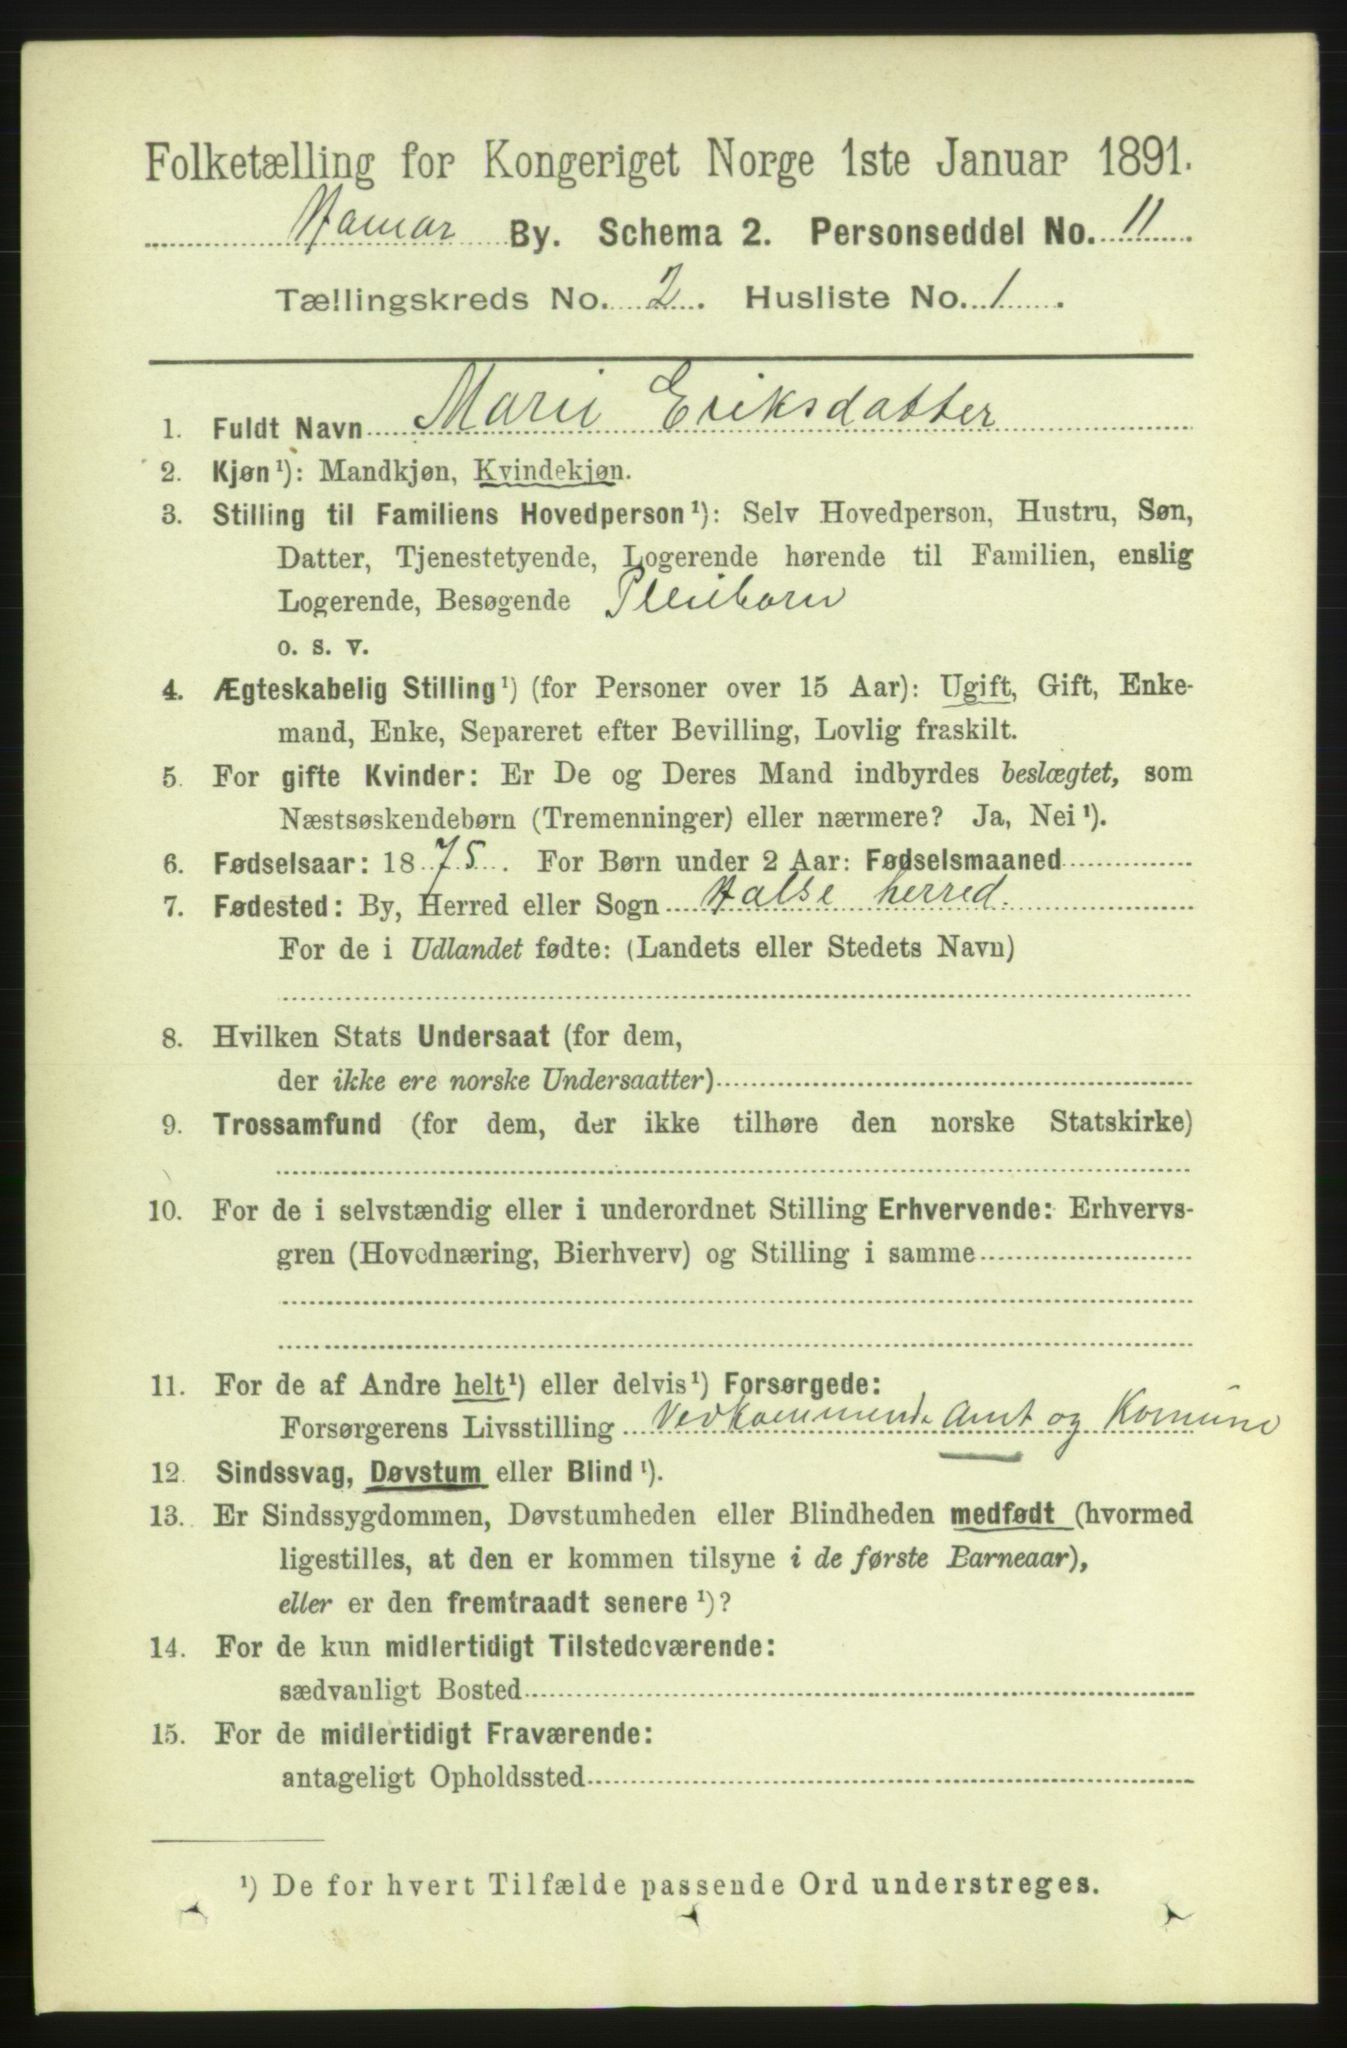 Folketælling for Kongeriget Norge 1ste Januar 1891.
Hamar By. Schema 2. Personseddel No. 11.
Tællingskreds No. 2. Husliste No. 1.
1. Fuldt Navn Marie Eriksdatter
2. Kjøn¹): Mandkjøn, Kvindekjøn.
3. Stilling til Familiens Hovedperson¹): Selv Hovedperson, Hustru, Søn,
Datter, Tjenestetyende, Logerende hørende til Familien, enslig
Logerende, Besøgende Pleiebarn
o. s. v.
4. Ægteskabelig Stilling¹) (for Personer over 15 Aar): Ugift, Gift, Enke-
mand, Enke, Separeret efter Bevilling, Lovlig fraskilt.
5. For gifte Kvinder: Er De og Deres Mand indbyrdes beslægtet, som
Næstsøskendebørn (Tremenninger) eller nærmere? Ja, Nei¹).
6. Fødselsaar: 1875. For Børn under 2 Aar: Fødselsmaaned
7. Fødested: By, Herred eller Sogn Halse herred.
For de i Udlandet fødte: (Landets eller Stedets Navn)
8. Hvilken Stats Undersaat (for dem,
der ikke ere norske Undersaatter)
9. Trossamfund (for dem, der ikke tilhøre den norske Statskirke)
10. For de i selvstændig eller i underordnet Stilling Erhvervende: Erhvervs-
gren (Hovednæring, Bierhverv) og Stilling i samme
11. For de af Andre helt¹) eller delvis¹) Forsørgede:
Forsørgerens Livsstilling Vedkommende Amt og Komune
12. Sindssvag, Døvstum eller Blind¹).
13. Er Sindssygdommen, Døvstumheden eller Blindheden medfødt (hvormed
ligestilles, at den er kommen tilsyne i de første Barneaar),
eller er den fremtraadt senere¹)?
14. For de kun midlertidigt Tilstedeværende:
sædvanligt Bosted
15. For de midlertidigt Fraværende:
antageligt Opholdssted
¹) De for hvert Tilfælde passende Ord understreges.